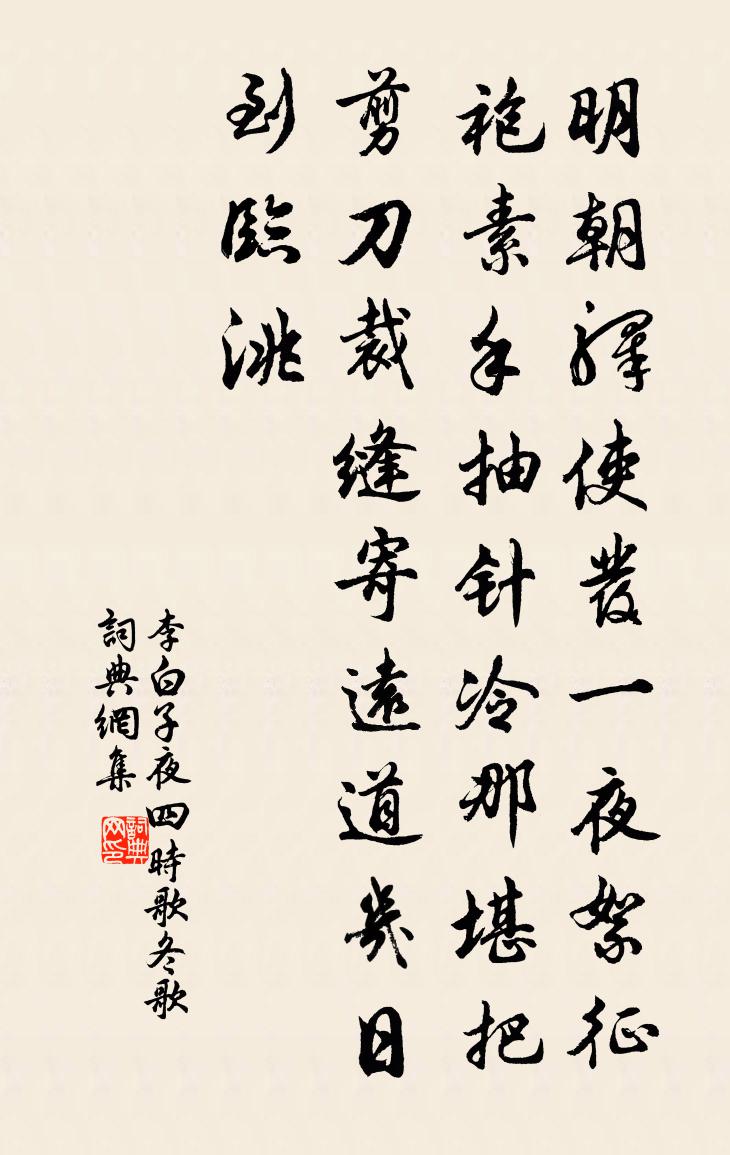 明朝驛使發一夜絮征
袍素手抽针冷那堪把
剪刀裁縫寄遠道幾日
到臨洮
李白子夜四時歌冬歌
詞典網集
詞典网印